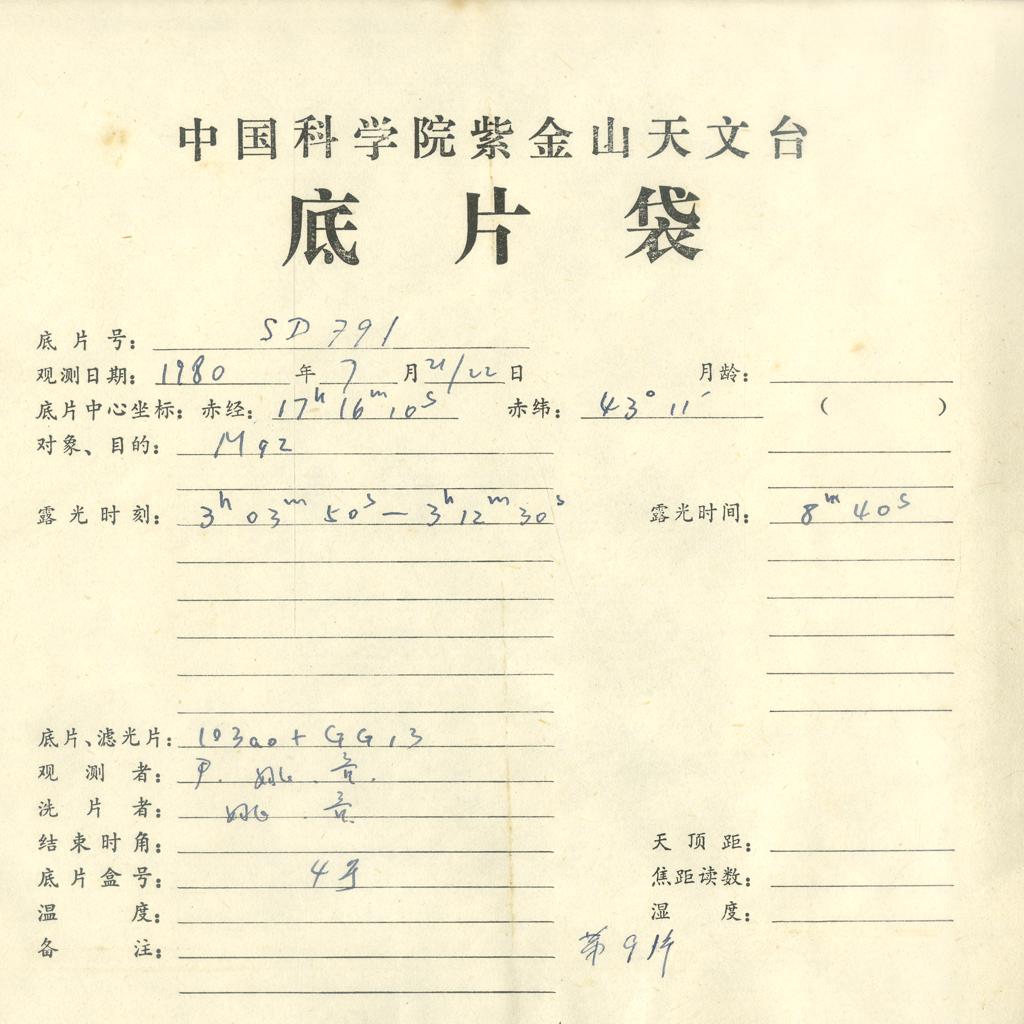 中国科学院紫金山天文台
底片袋
底片号： SD 791
观测日期： 1980 年 7 月 21/22 日 月龄：
底片中心坐标： 赤经： 17h 16m 10s 赤纬： 43° 11′ （ ）
对象、目的： M92
露光时刻： 3h 03m 50s — 3h 12m 30s 露光时间： 8m 40s
底片、滤光片： 103ao + GG13
观测者： 尹. 姚. 言.
洗片者： 姚. 言.
结束时角： 天顶距：
底片盒号： 4号 焦距读数：
温度： 湿度：
备注： 第9片